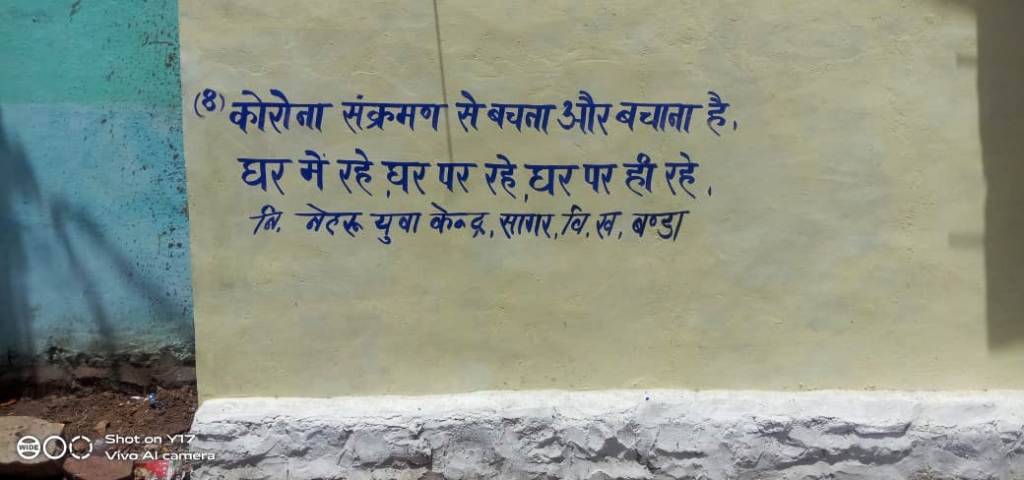 (8) कोरोना संक्रमण से बचना और बचाना है,
घर में रहे, घर पर रहे, घर पर ही रहे,
नि. नेहरू युवा केन्द्र, सागर, वि. ख, बण्डा
Shot on Y17
Vivo AI camera